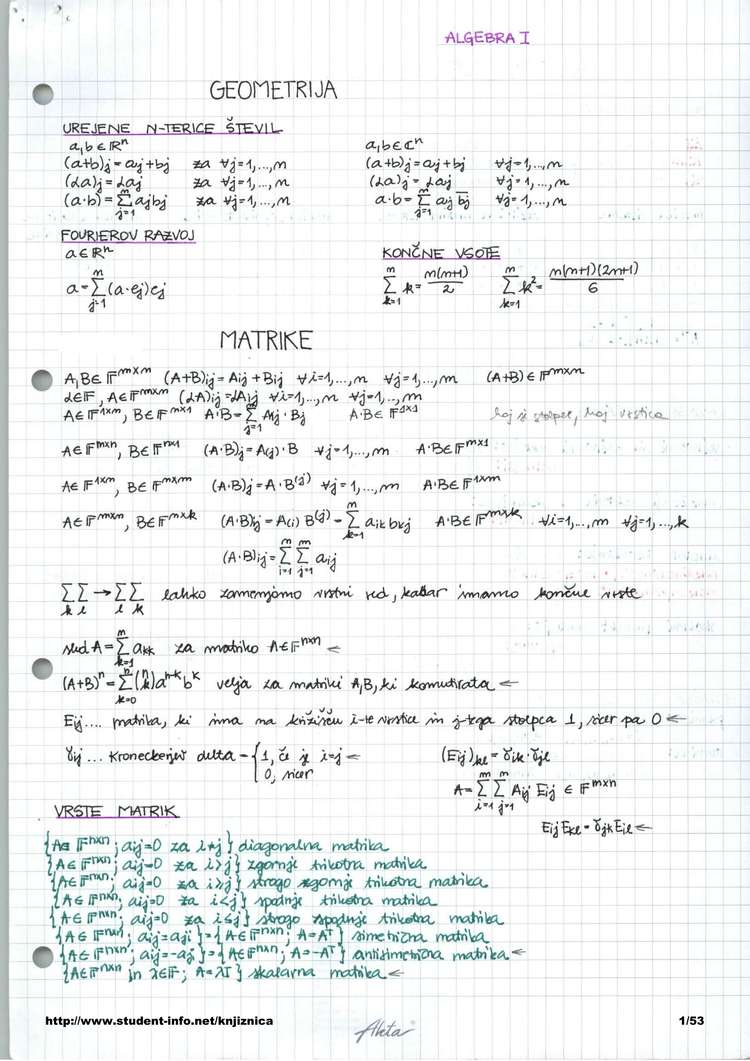 ALGEBRA I
GEOMETRIJA
UREJENE N-TERICE ŠTEVIL
a,b ∈ ℝⁿ
(a+b)j = aj + bj za ∀j=1,...,n
(αa)j = αaj za ∀j=1,...,n
(a·b) = Σ_{j=1}^{n} aj bj za ∀j=1,...,n
a,b ∈ ℂⁿ
(a+b)j = aj + bj ∀j=1,...,n
(αa)j = αaj ∀j=1,...,n
a·b = Σ_{j=1}^{n} aj b̅j ∀j=1,...,n
FOURIEROV RAZVOJ
a ∈ ℝⁿ
a = Σ_{j=1}^{n} (a·ej)ej
KONČNE VSOTE
Σ_{k=1}^{n} k = n(n+1)/2 Σ_{k=1}^{n} k² = n(n+1)(2n+1)/6
MATRIKE
A,B ∈ 𝔽^{m×n} (A+B)ij = Aij + Bij ∀i=1,...,m ∀j=1,...,n (A+B) ∈ 𝔽^{m×n}
α∈𝔽, A∈𝔽^{m×n} (αA)ij = αAij ∀i=1,...,m ∀j=1,...,n
A∈𝔽^{1×n}, B∈𝔽^{n×1} A·B = Σ_{j=1}^{n} Aj·Bj A·B∈ 𝔽^{1×1} kaj je stolpec, kaj vrstica
A∈𝔽^{m×n}, B∈𝔽^{n×1} (A·B)j = A(j)·B ∀j=1,...,m A·B∈𝔽^{m×1}
A∈𝔽^{1×m}, B∈𝔽^{m×n} (A·B)j = A·B^{(j)} ∀j=1,...,n A·B∈𝔽^{1×n}
A∈𝔽^{m×n}, B∈𝔽^{n×k} (A·B)ij = A(i) B^{(j)} = Σ_{k=1}^{n} aik bkj A·B∈𝔽^{m×k} ∀i=1,...,m ∀j=1,...,k
(A·B)ij = Σ_{i=1}^{m} Σ_{j=1}^{n} aij
Σ_k Σ_l → Σ_l Σ_k lahko zamenjamo vrstni red, kadar imamo končne vrste
sled A = Σ_{k=1}^{n} akk za matriko A∈𝔽^{n×n} ←
(A+B)ⁿ = Σ_{k=0}^{n} (n k) a^{n-k} b^k velja za matriki A,B, ki komutirata ←
Eij .... matrika, ki ima na križišču i-te vrstice in j-tega stolpca 1, sicer pa 0 ←
δij ... Kroneckerjev delta = { 1, če je i=j ←
0, sicer
(Eij)kl = δik·δjl
A = Σ_{i=1}^{m} Σ_{j=1}^{n} Aij Eij ∈ 𝔽^{m×n}
Eij Ekl = δjk Eil ←
VRSTE MATRIK
{A∈ 𝔽^{n×n}; aij=0 za i≠j} diagonalna matrika
{A∈ 𝔽^{n×n}; aij=0 za i>j} zgornje trikotna matrika
{A∈ 𝔽^{n×n}; aij=0 za i≥j} strogo zgornje trikotna matrika
{A∈ 𝔽^{n×n}; aij=0 za i<j} spodnje trikotna matrika
{A∈ 𝔽^{n×n}; aij=0 za i≤j} strogo spodnje trikotna matrika
{A∈ 𝔽^{n×n}; aij=aji} = {A∈𝔽^{n×n}; A=Aᵀ} simetrična matrika
{A∈ 𝔽^{n×n}; aij=-aji} = {A∈𝔽^{n×n}; A=-Aᵀ} antisimetrična matrika ←
{A∈𝔽^{n×n} in λ∈𝔽; A=λI} skalarna matrika ←
http://www.student-info.net/knjiznica
Akta
1/53